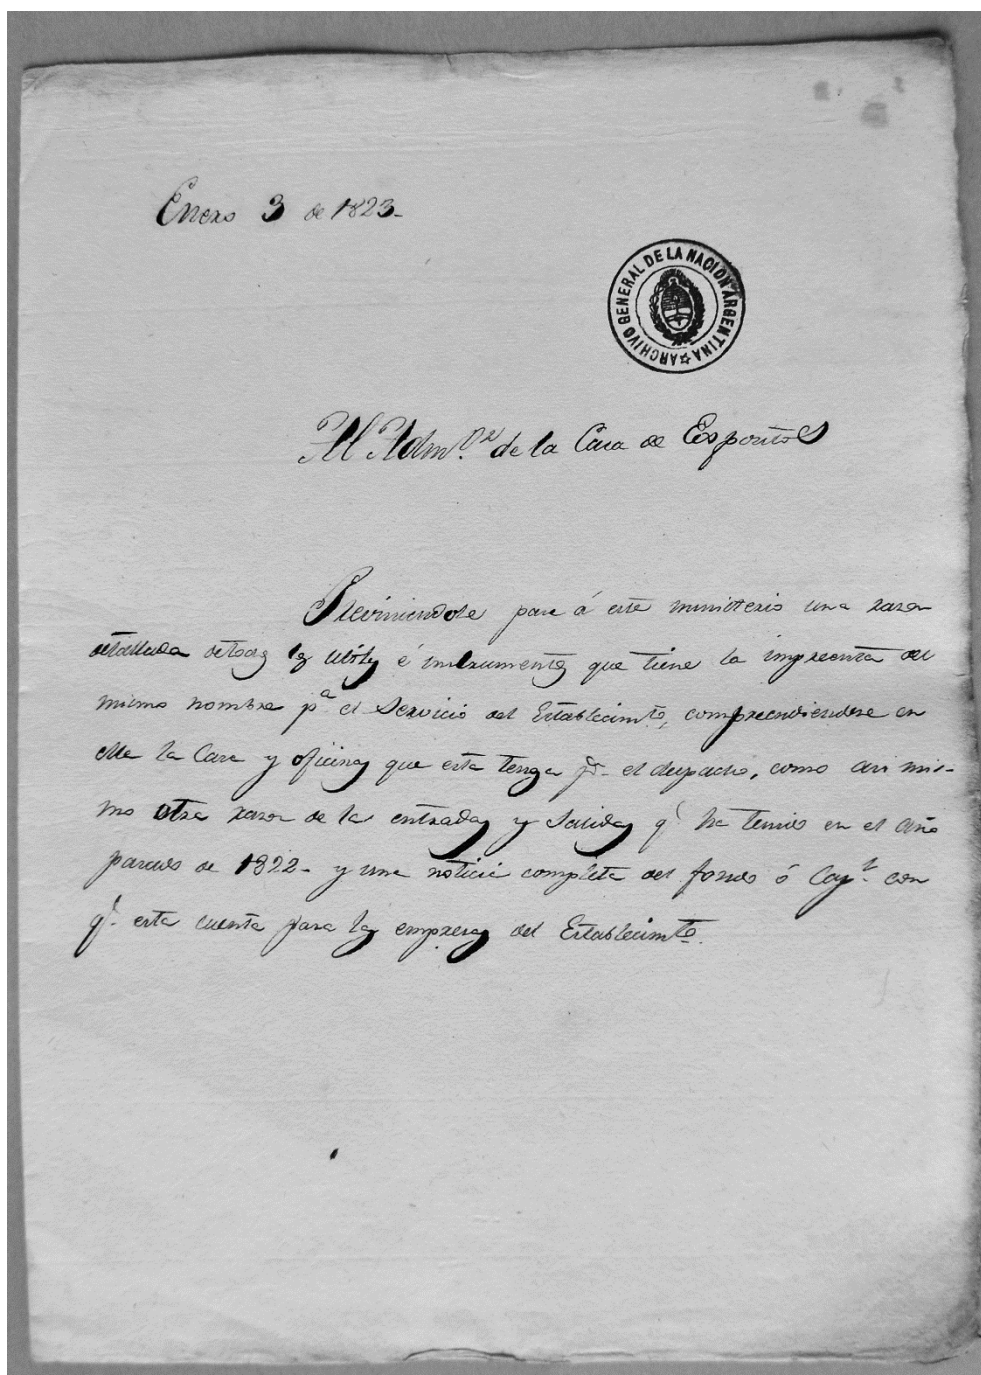 Enero 3 de 1823-
ARCHIVO GENERAL DE LA NACION ARGENTINA
Al Adm.or de la Casa de Espositos
Previniendole pase á este ministerio una razon
detallada de todas las utiles é instrumentos que tiene la imprenta del
mismo nombre pa el Servicio del Establecimto, comprendiendose en
ella la Casa y oficinas que esta tenga pa el despacho, como asi mis-
mo otra razon de las entradas y Salidas q.e ha tenido en el año
pasado de 1822- y una noticia completa del fondo ó Cap.l con
q.e esta cuenta para las empresas del Establecimto.